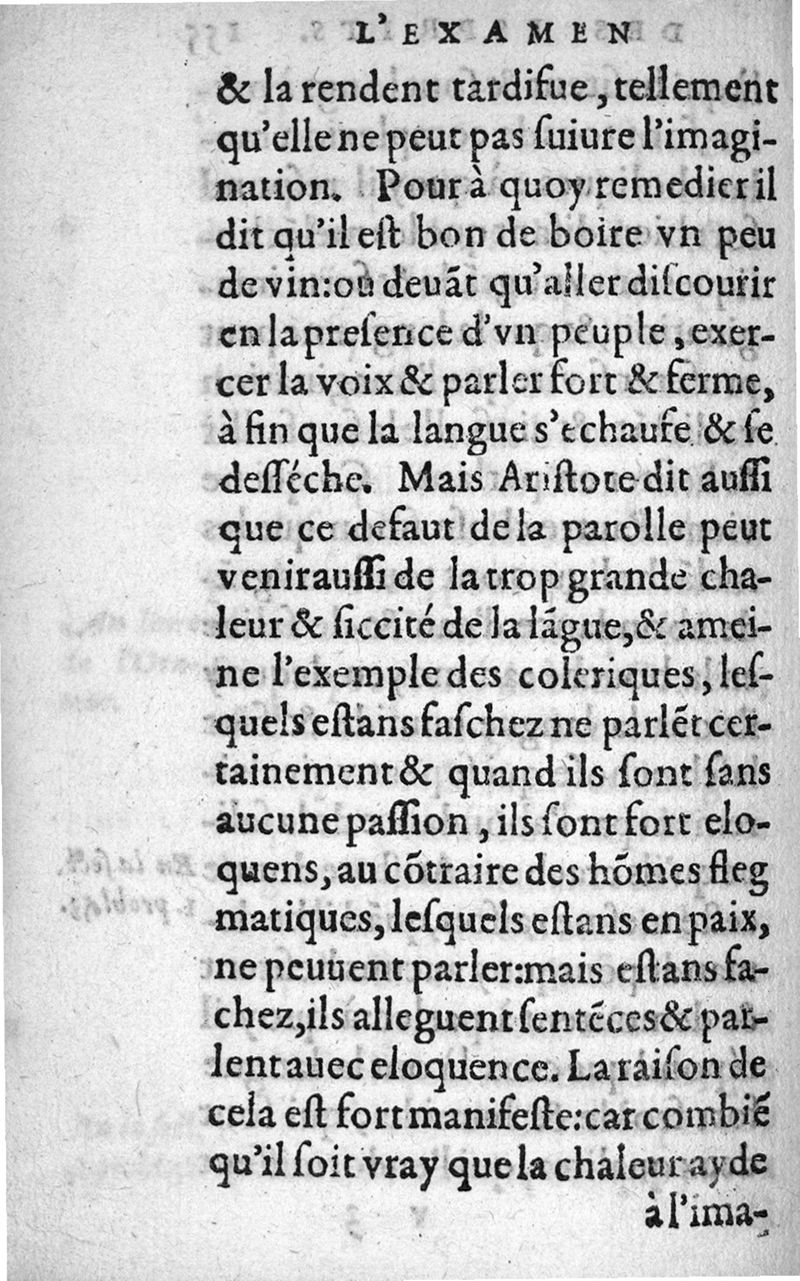 L'EXAMEN
& la rendent tardifue, tellement
qu'elle ne peut pas ſuiure l'imagi-
nation. Pour à quoy remedier il
dit qu'il eſt bon de boire vn peu
de vin:ou deuãt qu'aller diſcourir
en la preſence d'vn peuple, exer-
cer la voix & parler fort & ferme,
à fin que la langue s'echaufe & ſe
deſſéche. Mais Ariſtote dit auſſi
que ce defaut de la parolle peut
venir auſſi de la trop grande cha-
leur & ſiccité de la lãgue, & amei-
ne l'exemple des coleriques, leſ-
quels eſtans faſchez ne parlẽt cer-
tainement & quand ils ſont ſans
aucune paſſion, ils ſont fort elo-
quens, au cõtraire des hõmes fleg
matiques, leſquels eſtans en paix,
ne peuuent parler:mais eſtans fa-
chez, ils alleguent ſentẽces & par-
lent auec eloquence. La raiſon de
cela eſt fort manifeſte:car combiẽ
qu'il ſoit vray que la chaleur ayde
à l'ima-